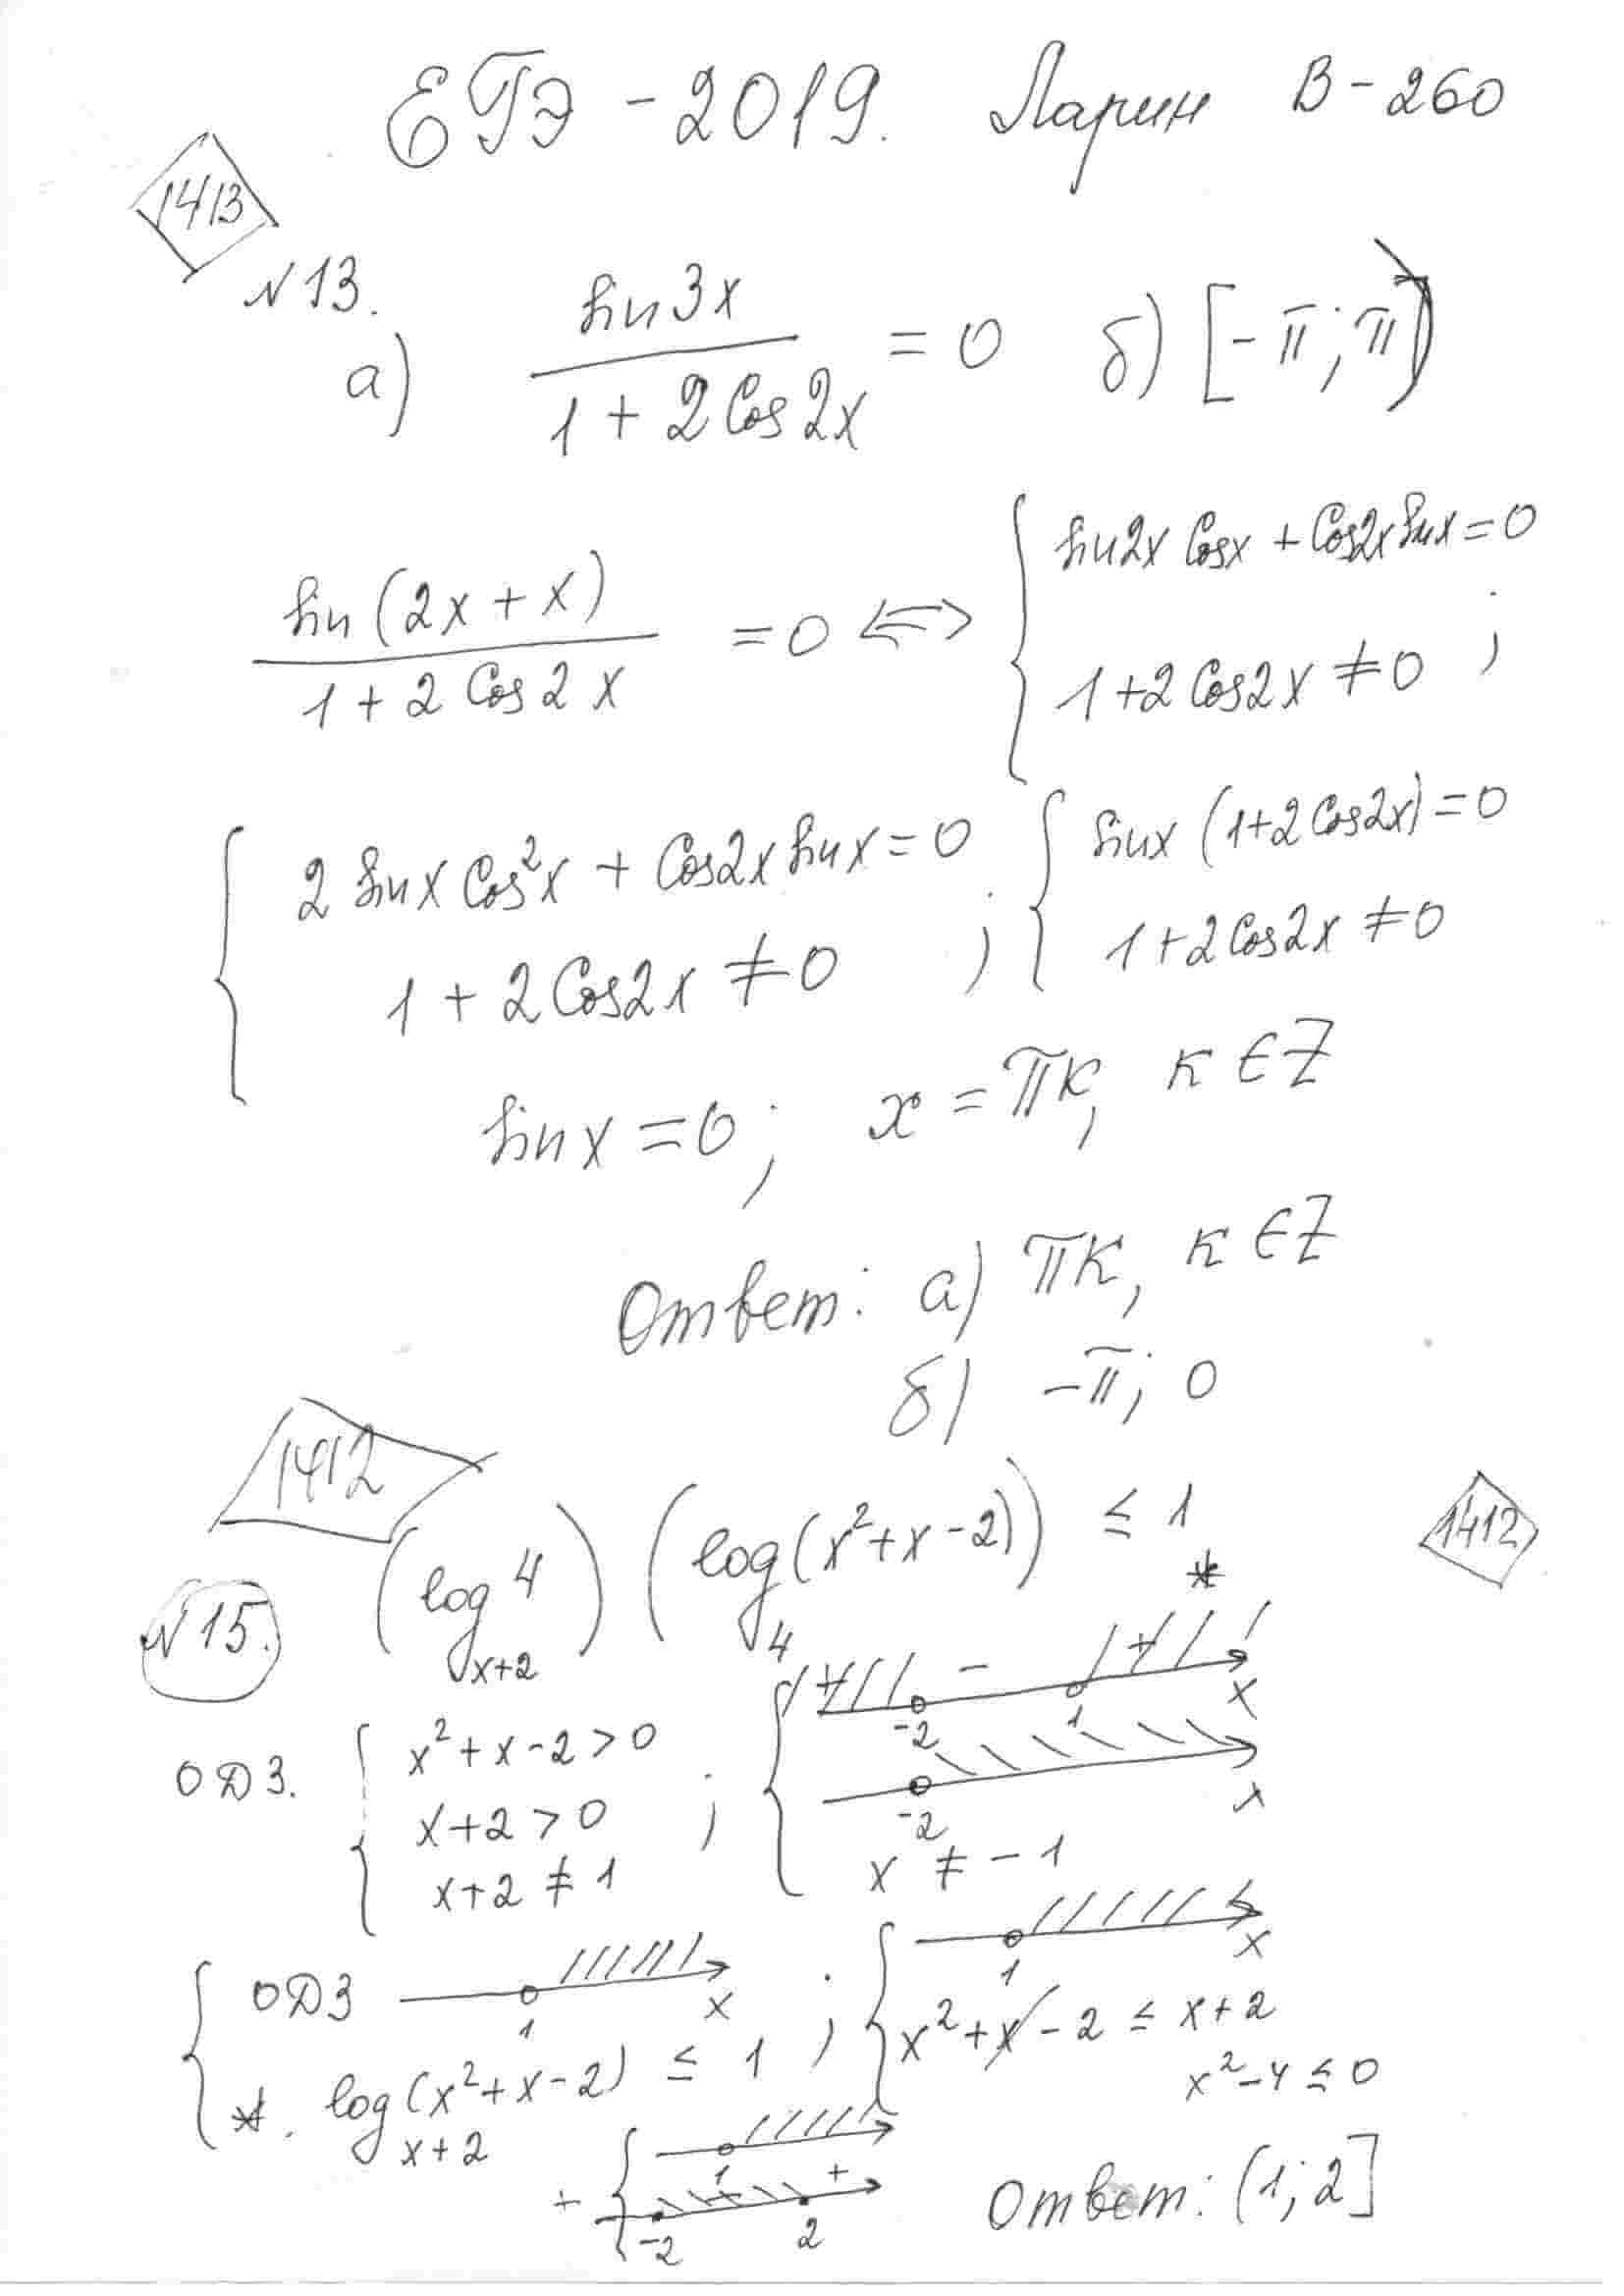 ЕГЭ - 2019. Ларин В - 260
1413
N 13.
а) sin3x / (1 + 2Cos2x) = 0 б) [-π; π)
sin(2x + x) / (1 + 2Cos2x) = 0 <=> { sin2x Cosx + Cos2x sinx = 0
1 + 2Cos2x ≠ 0 ;
{ 2 sinx Cos²x + Cos2x sinx = 0 ; { sinx (1+2Cos2x) = 0
1 + 2Cos2x ≠ 0 1 + 2Cos2x ≠ 0
sinx = 0; x = πк, к ∈ Z
Ответ: а) πк, к ∈ Z
б) -π; 0
1412
N 15. (log_{x+2} 4) (log_4 (x² + x - 2)) ≤ 1 *
1412
+ - + x
-2 1
ОДЗ. { x² + x - 2 > 0
x + 2 > 0 ;
x + 2 ≠ 1
-2 x
x ≠ - 1
{ ОДЗ 1 x ; { 1 x
*. log_{x+2} (x² + x - 2) ≤ 1 x² + x - 2 ≤ x + 2
x² - 4 ≤ 0
{ 1
+ - +
-2 2
Ответ: (1; 2]